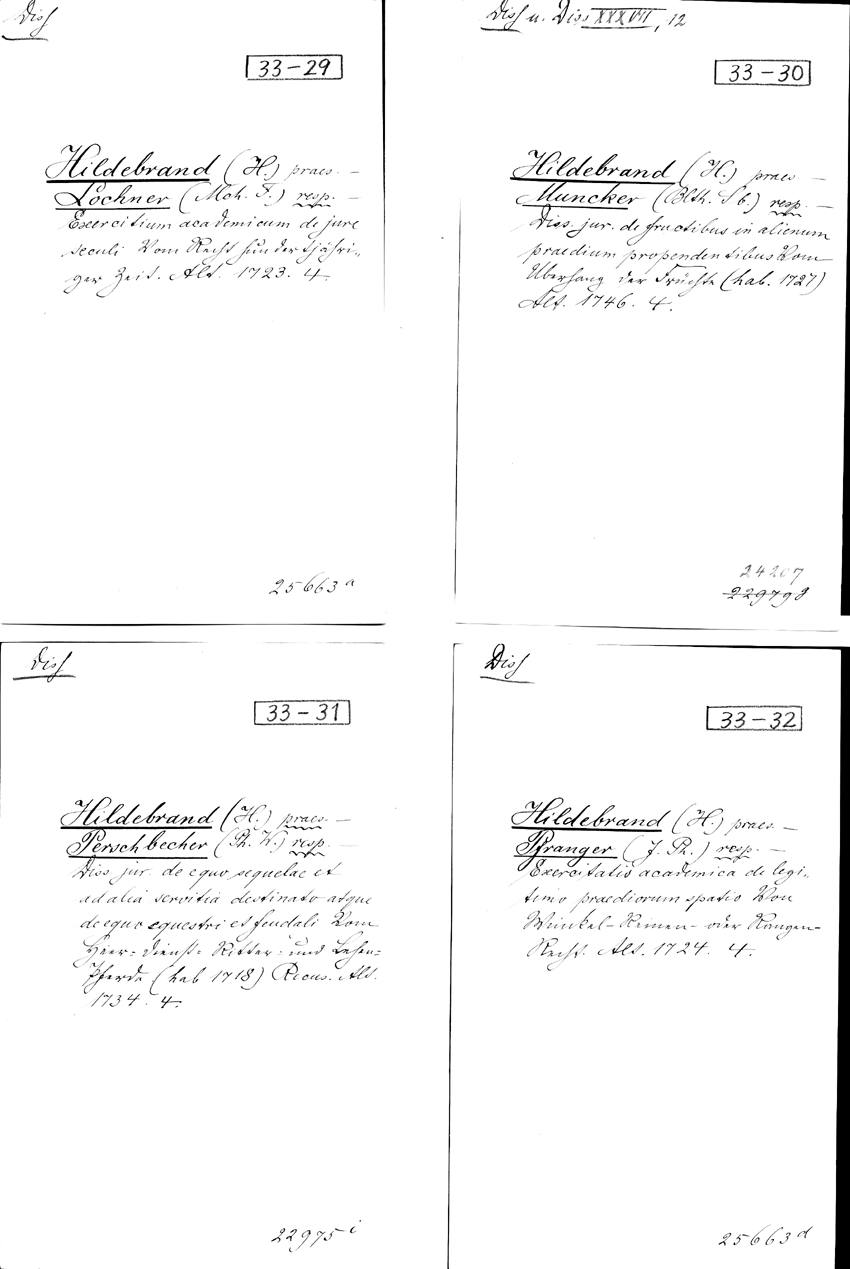 Diss
33-29
Hildebrand (H.) praes. —
Lochner (Mch. F.) resp. —
Exercitium academicum de jure
seculi Vom Recht hundertjähri-
ger Zeit. Alt. 1723. 4.
25663 a
Diss u. Diss XXXVII, 12
33-30
Hildebrand (H.) praes. —
Muncker (Blth. Sb.) resp. —
Diss. jur. de fructibus in alienum
praedium propendentibus Vom
Überhang der Früchte (hab. 1727)
Alt. 1746. 4.
24207
229798
Diss
33-31
Hildebrand (H.) praes. —
Perschbecher (Ph. W.) resp. —
Diss. jur. de equo sequelae et
ad alia servitia destinato atque
de equo equestri et feudali Vom
Heer- Dienst- Ritter- und Lehen-
Pferde (hab 1718) Recus. Alt.
1734. 4.
22975 i
Diss
33-32
Hildebrand (H.) praes. —
Pfranger (J. Ph.) resp. —
Exercitatio academica de legi-
timo praediorum spatio Von
Winkel- Reinen- oder Rangen-
Recht. Alt. 1724. 4.
25663 d